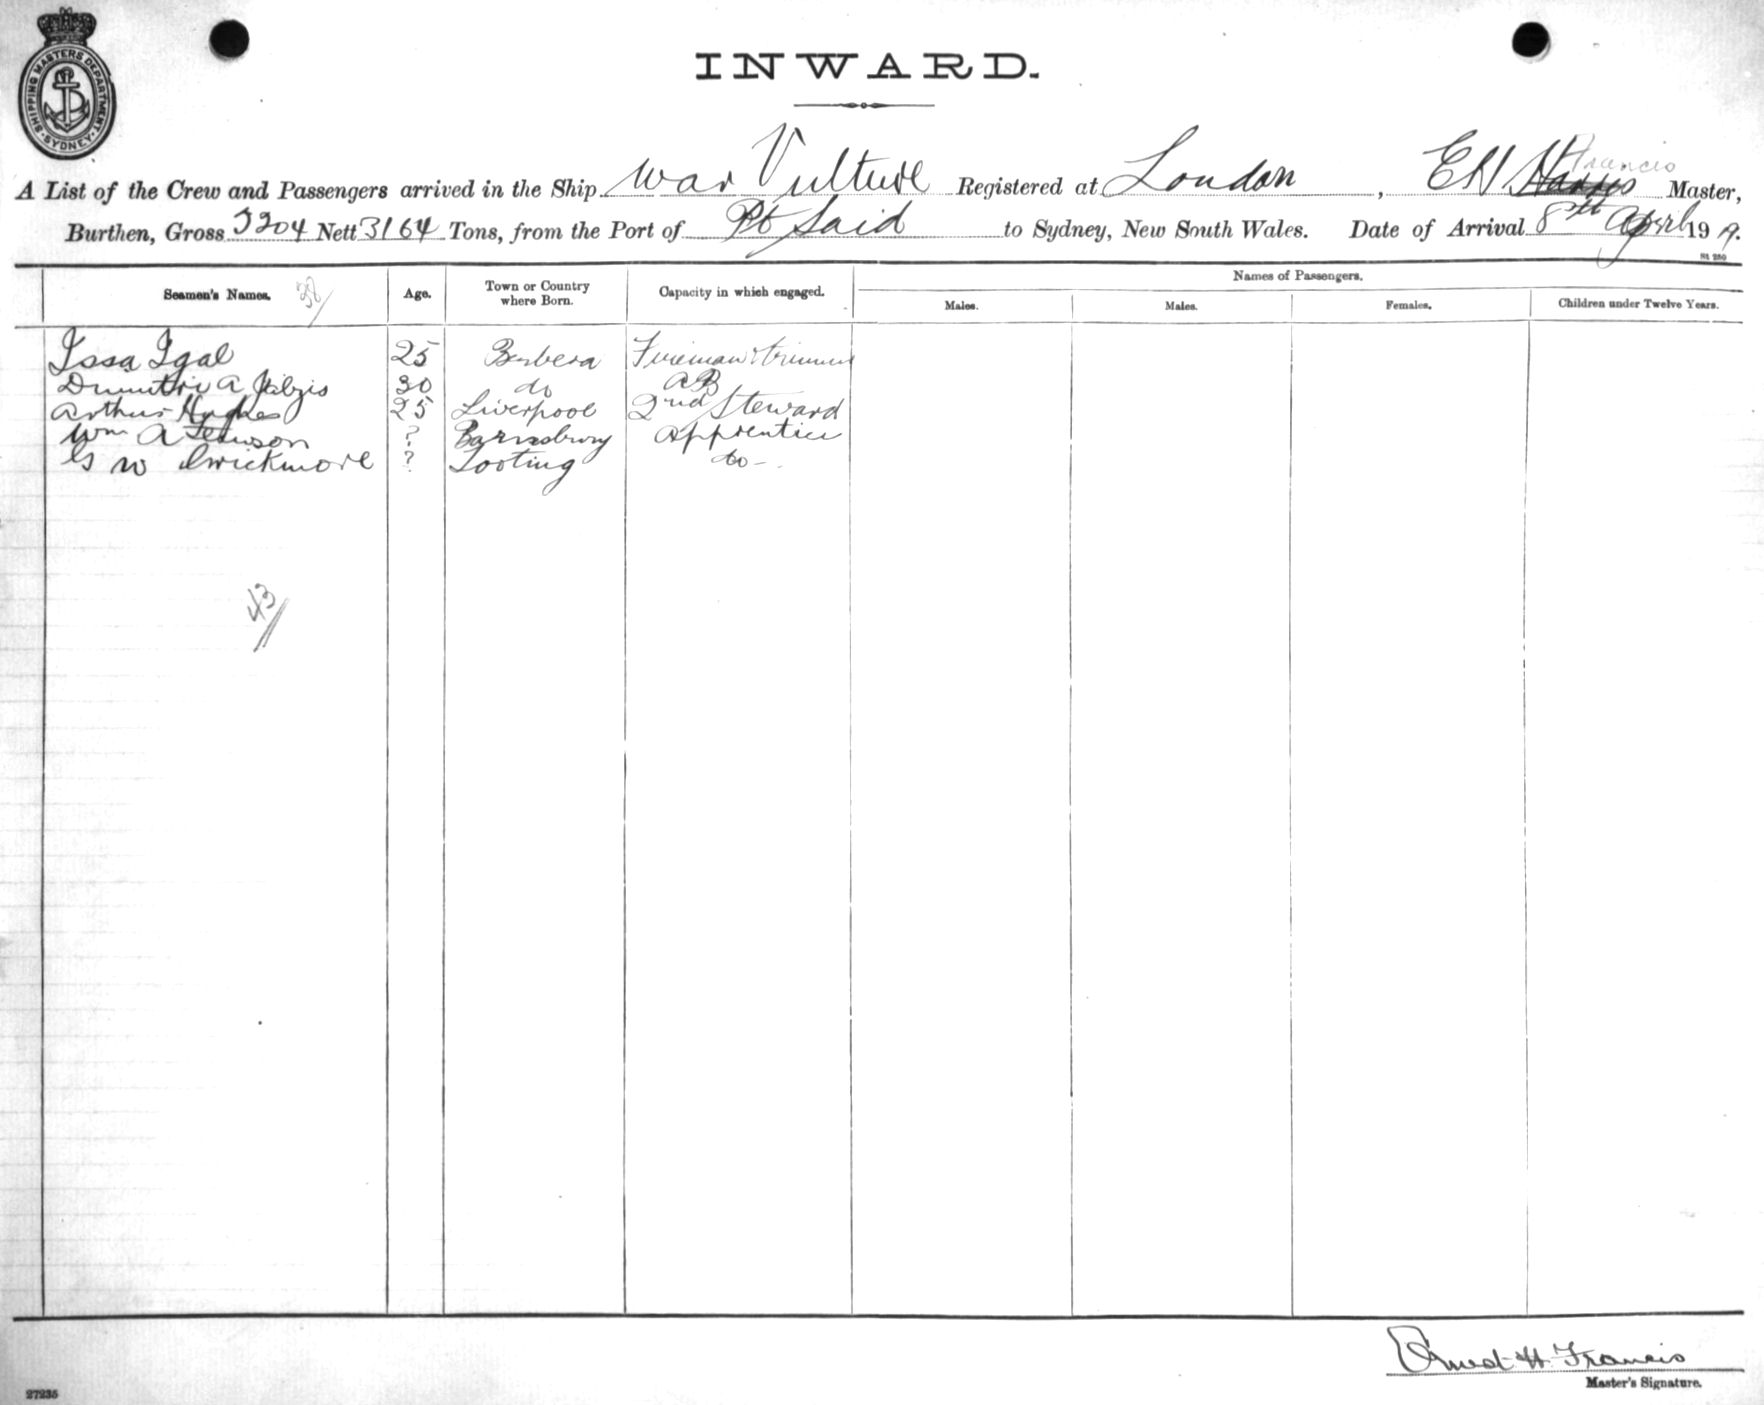 SHIPPING MASTERS DEPARTMENT SYDNEY
INWARD.
A List of the Crew and Passengers arrived in the Ship War Vulture Registered at London, E H Harris Francis Master,
Burthen, Gross 5204 Nett 3164 Tons, from the Port of Pt Said to Sydney, New South Wales. Date of Arrival 8th April 1919.
Names of Passengers.
Seamen's Names. 38/ Age. Town or Country where Born. Capacity in which engaged. Males. Males. Females. Children under Twelve Years.
Issa Igal 25 Berbera Fireman & trimmer
Dimitri A 30 do AB
Arthur Hughes 25 Liverpool 2nd Steward
Wm A ? Barnsbury apprentice
G W ? Tooting do -
43/
Ernest H. Francis
Master's Signature.
27235